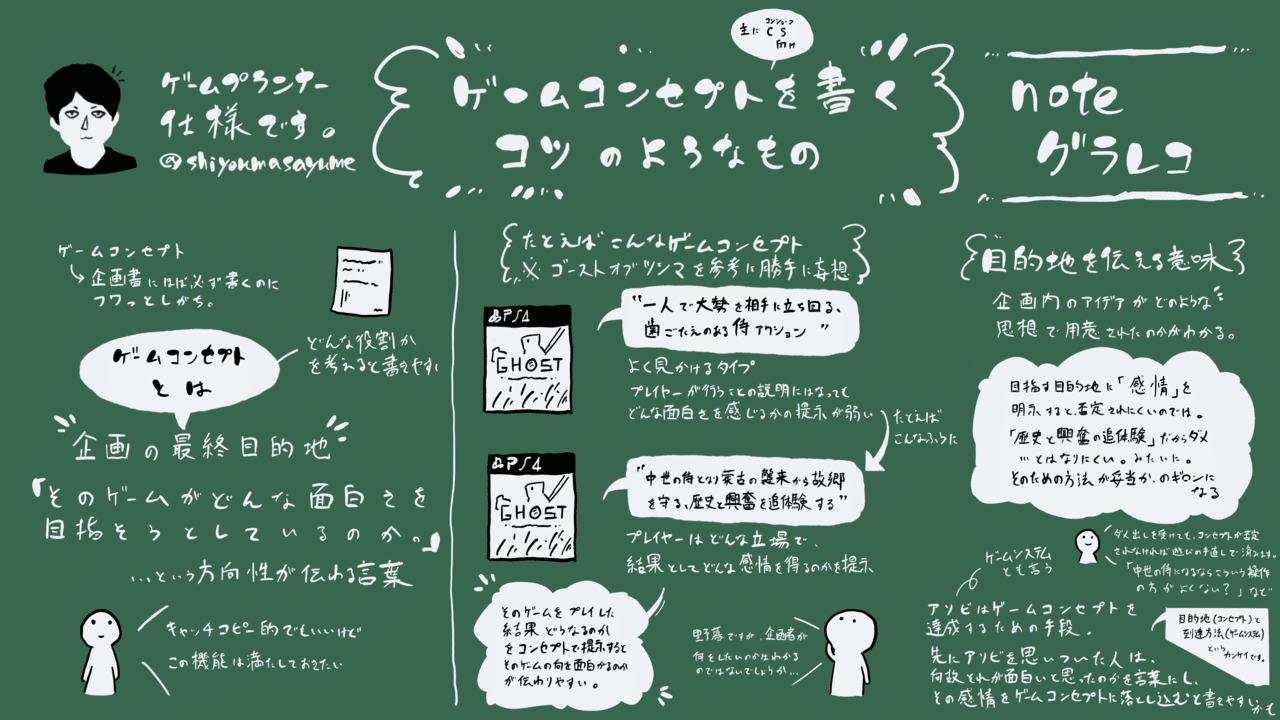 ゲームプランナー
仕様です。
@shiyoumasayume
主に CS
コンシューマ
向け
ゲームコンセプトを書く
コツのようなもの
note
グラレコ
ゲームコンセプト
企画書にほぼ必ず書くのに
フワッとしがち。
どんな役割か
を考えると書きやすい
ゲームコンセプト
とは
企画の最終目的地
「そのゲームがどんな面白さを
目指そうとしているのか。」
…という方向性が伝わる言葉
キャッチコピー的でもいいけど
この機能は満たしておきたい
たとえばこんなゲームコンセプト
※ゴーストオブツシマを参考に勝手に妄想
PS4
GHOST
"一人で大勢を相手に立ち回る、
歯ごたえのある侍アクション"
よく見かけるタイプ
プレイヤーが行うことの説明にはなっても
どんな面白さを感じるかの提示が弱い
たとえば
こんなふうに
PS4
GHOST
"中世の侍となり蒙古の襲来から故郷
を守る、歴史と興奮を追体験する"
プレイヤーはどんな立場で、
結果としてどんな感情を得るのかを提示
そのゲームをプレイした
結果どうなるのか
をコンセプトで提示すると
そのゲームの何を面白がるのか
が伝わりやすい。
野暮ですが、企画者が
何をしたいのかはわかる
のではないでしょうか…
目的地を伝える意味
企画内のアイデアがどのような
思想で用意されたのかがわかる。
目指す目的地に「感情」を
明示すると、否定されにくいのでは。
「歴史と興奮の追体験」だからダメ
…とはなりにくい。みたいな。
そのための方法が妥当か、のギロンに
なる
ダメ出しを受けても、コンセプトが否定
されなければ遊びの手直しで済みます。
「中世の侍になるならこういう操作
の方がよくない？」など
ゲームシステム
とも言う
アソビはゲームコンセプトを
達成するための手段。
目的地(コンセプト)と
到達方法(ゲームシステム)
という
カンケイです。
先にアソビを思いついた人は、
何故それが面白いと思ったのかを言葉にし、
その感情をゲームコンセプトに落とし込むと書きやすいかも